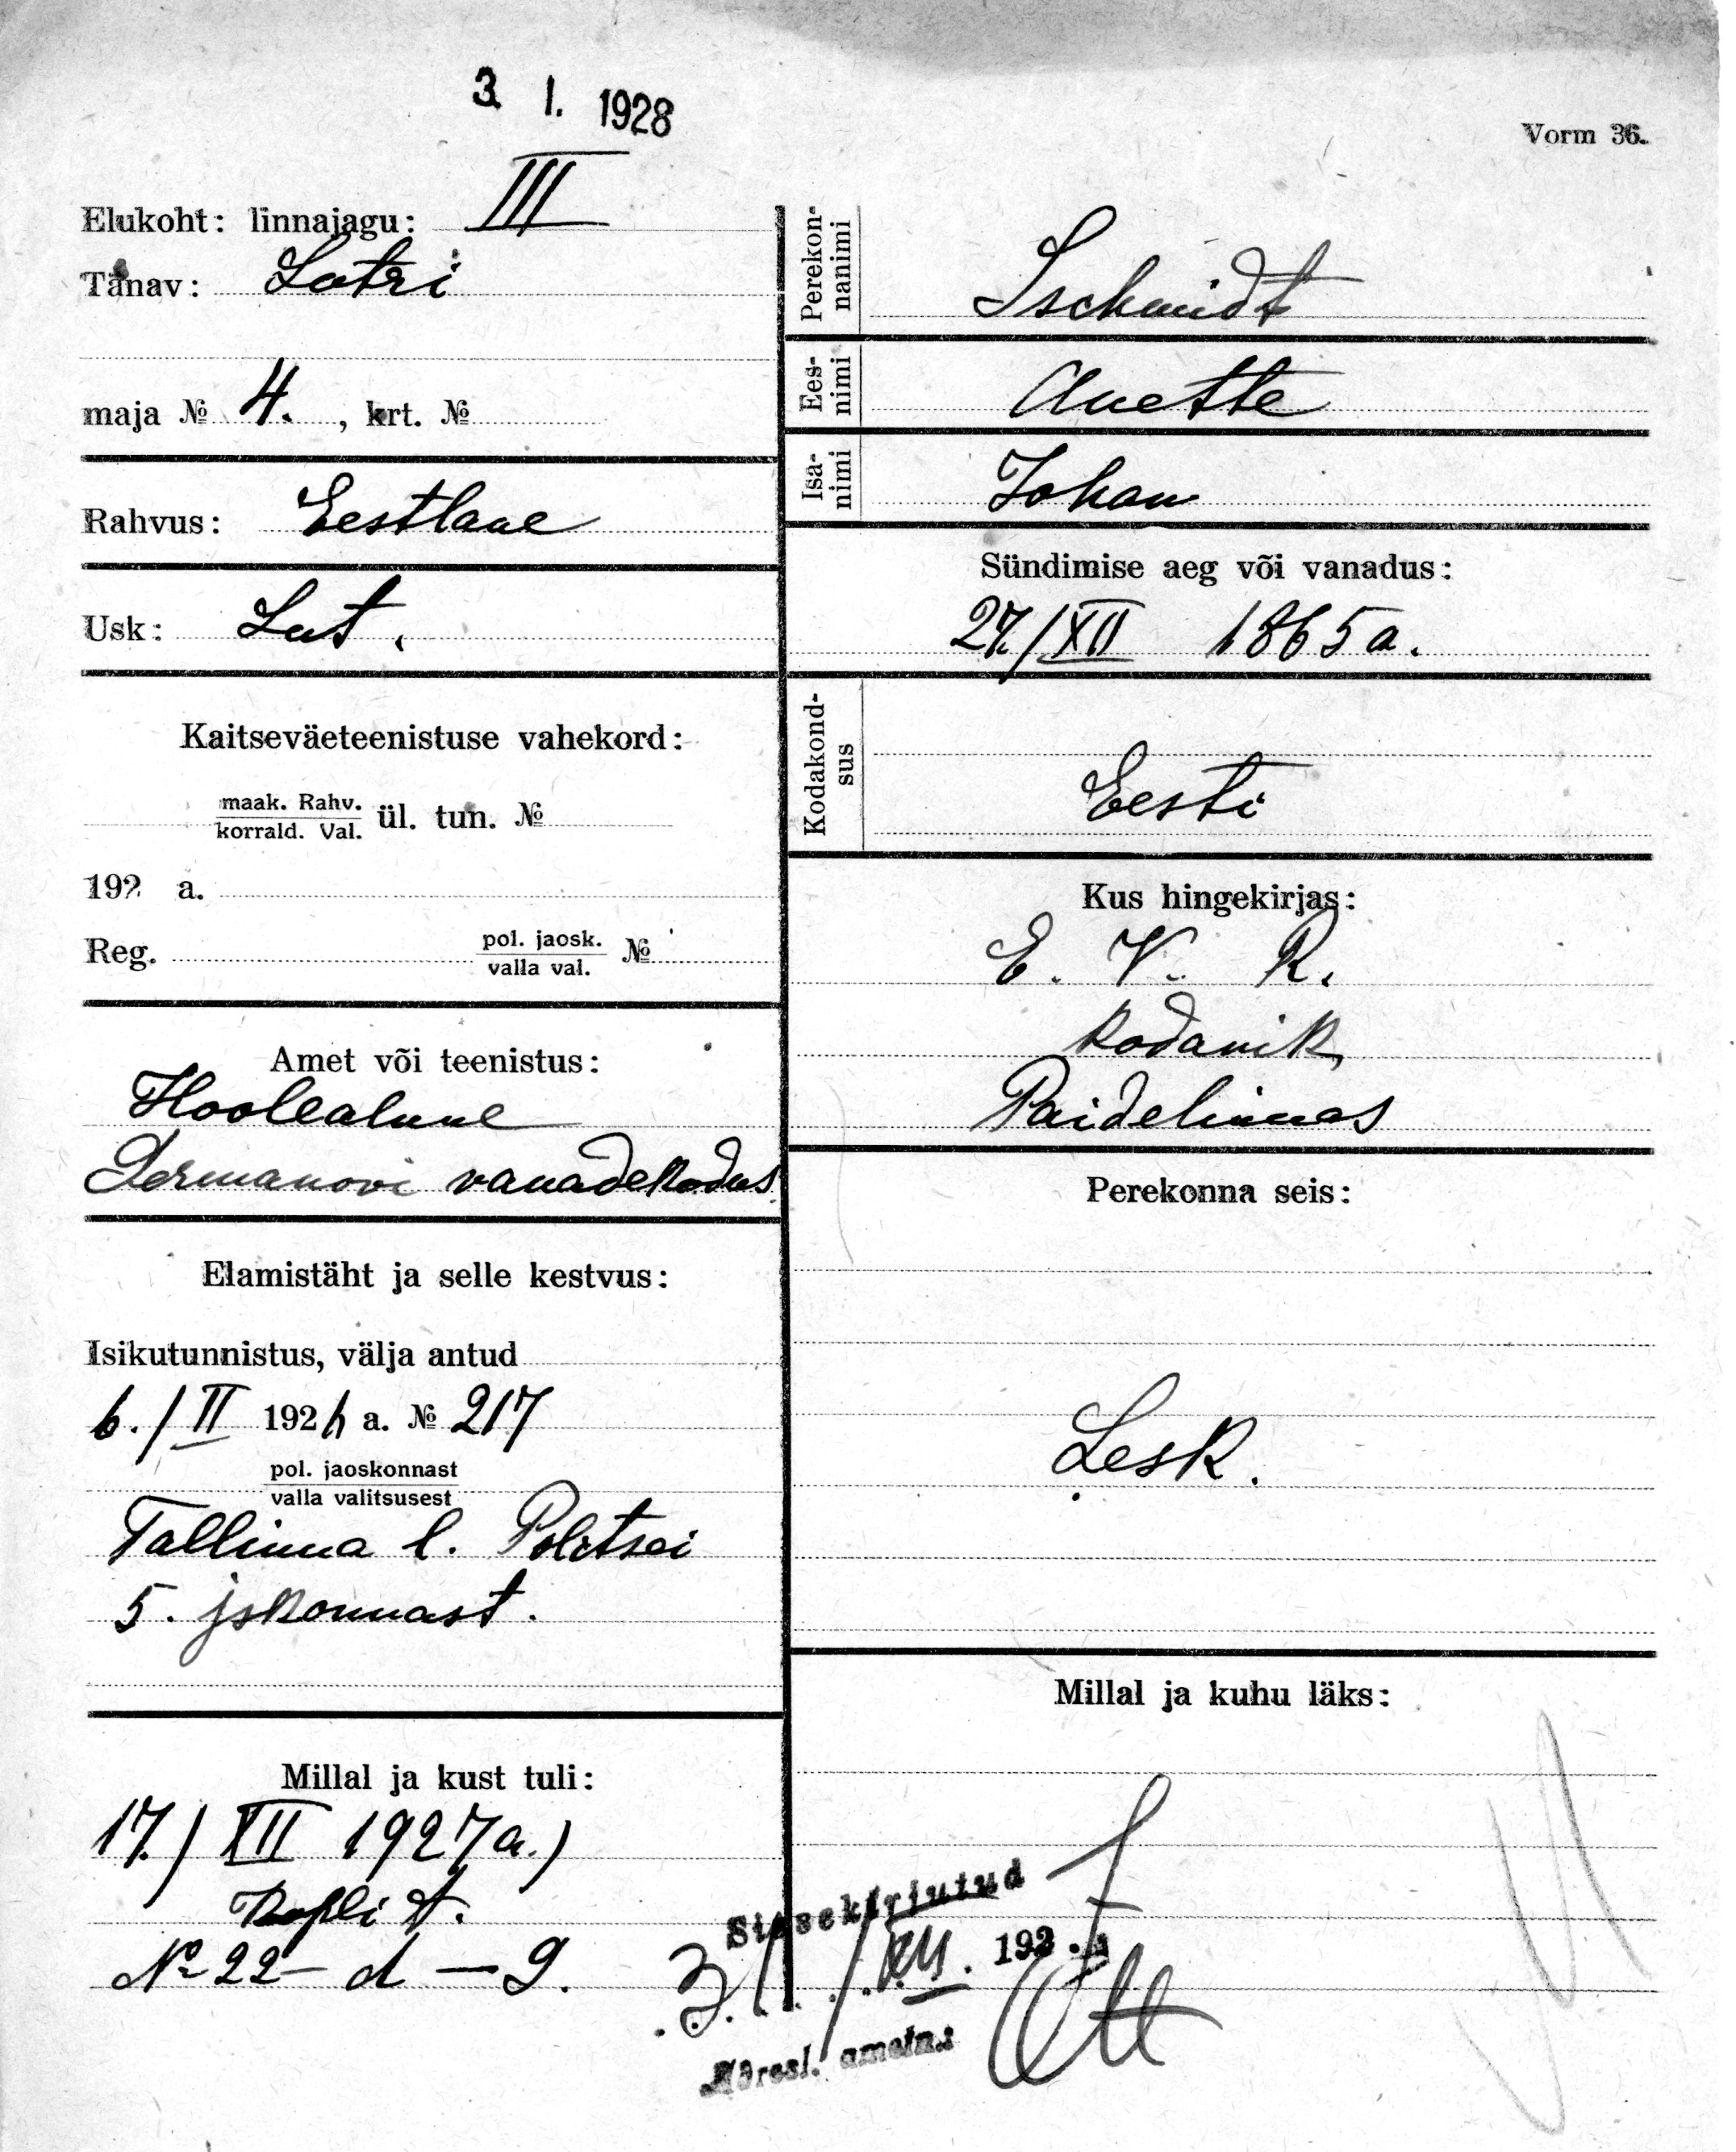 3. 1. 1928
Vorm 36.
Elukoht: linnajagu: III
Tänav: Latri
maja № 4. , krt. №
Rahvus: Eestlane
Usk: Lut.
Kaitseväeteenistuse vahekord:
maak. Rahv.
korrald. Val. ül. tun. №
192 a.
Reg. pol. jaosk.
valla val. №
Amet või teenistus:
Hoolealune
Dermanovi vanadekodus
Elamistäht ja selle kestvus:
Isikutunnistus, välja antud
6./II 192 a. № 217
pol. jaoskonnast
valla valitsusest
Tallinna l. Politsei
5. jskonnast.
Millal ja kust tuli:
17.) XII 1927a.)
Kopli t.
№ 22 – d – 9.
Perekon-
nanimi
Schmidt
Ees-
nimi
Anette
Isa-
nimi
Johan
Sündimise aeg või vanadus:
27./XII 1865 a.
Kodakond-
sus
Eesti
Kus hingekirjas:
E. V. R.
kodanik
Paidelinnas
Perekonna seis:
Lesk.
Millal ja kuhu läks:
Sissekirjutud
31/XII. 192
Adresl. ametn.:
Ott